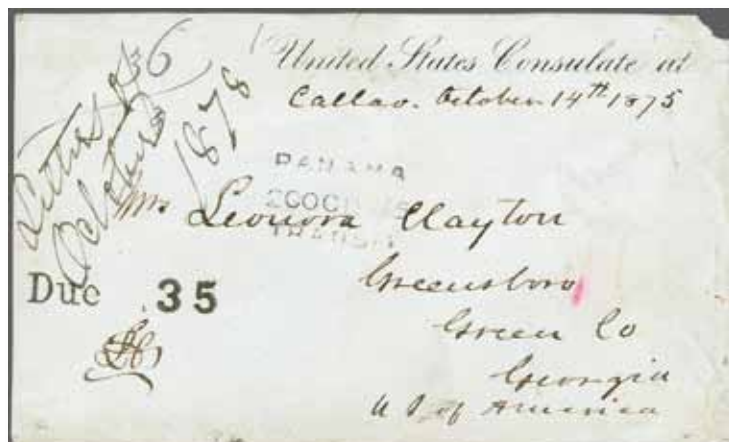 United States Consulate at
Callao. October 14th 1875
October
1878
PANAMA
TRANSIT
Mrs Leonora Clayton
Greensboro
Green Co
Georgia
U S of America
Due 35